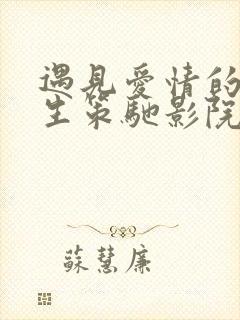 遇見愛情的
生策馳影院
蘇慧廉